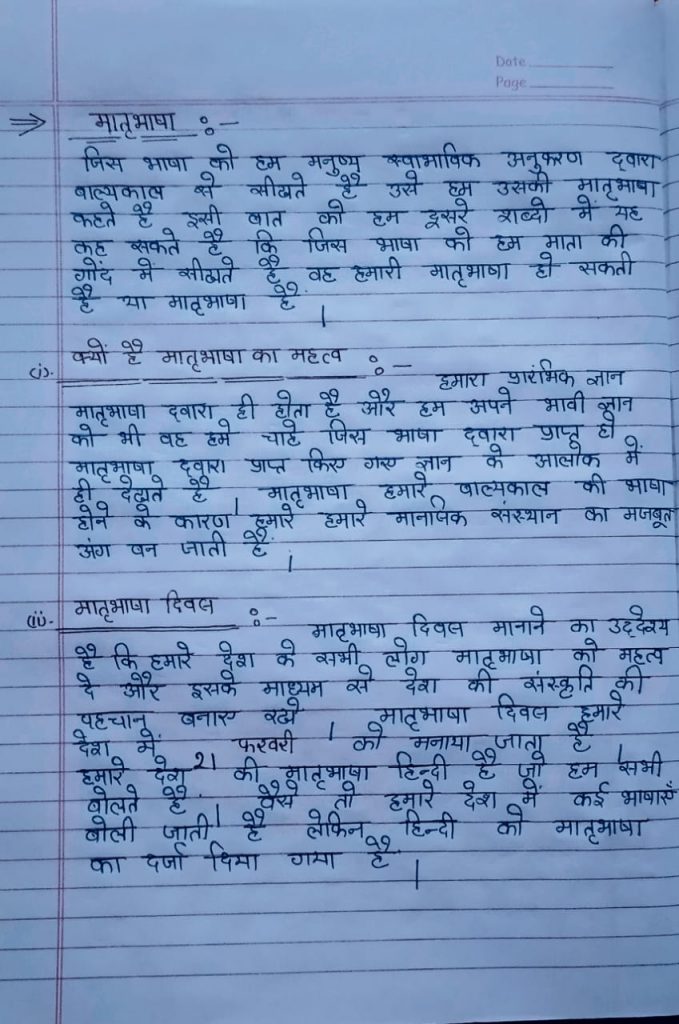 Date
Page
⇒ मातृभाषा :-
जिस भाषा को हम मनुष्य स्वाभाविक अनुकरण द्वारा
बाल्यकाल से सीखते है उसे हम उसकी मातृभाषा
कहते है इसी बात को हम दूसरे शब्दो में यह
कह सकते है कि जिस भाषा को हम माता की
गोंद में सीखते है वह हमारी मातृभाषा हो सकती
है या मातृभाषा है ।
(i). क्यों है मातृभाषा का महत्व :-
हमारा प्रारंभिक ज्ञान
मातृभाषा द्वारा ही होता है और हम अपने भावी ज्ञान
को भी वह हमे चाहे जिस भाषा द्वारा प्राप्त हो
मातृभाषा द्वारा प्राप्त किए गए ज्ञान के आलोक में
ही देखते है । मातृभाषा हमारे बाल्यकाल की भाषा
होने के कारण हमारे हमारे मानसिक संस्थान का मजबूत
अंग बन जाती है ।
(ii). मातृभाषा दिवस :-
मातृभाषा दिवस मानाने का उद्देश्य
है कि हमारे देश के सभी लोग मातृभाषा को महत्व
दे और इसके माध्यम से देश की संस्कृति की
पहचान बनाए रखे । मातृभाषा दिवस हमारे
देश में 21 फरवरी को मनाया जाता है ।
हमारे देश की मातृभाषा हिन्दी है जो हम सभी
बोलते है । वैसे तो हमारे देश में कई भाषाएँ
बोली जाती है लेकिन हिन्दी को मातृभाषा
का दर्जा दिया गया है ।